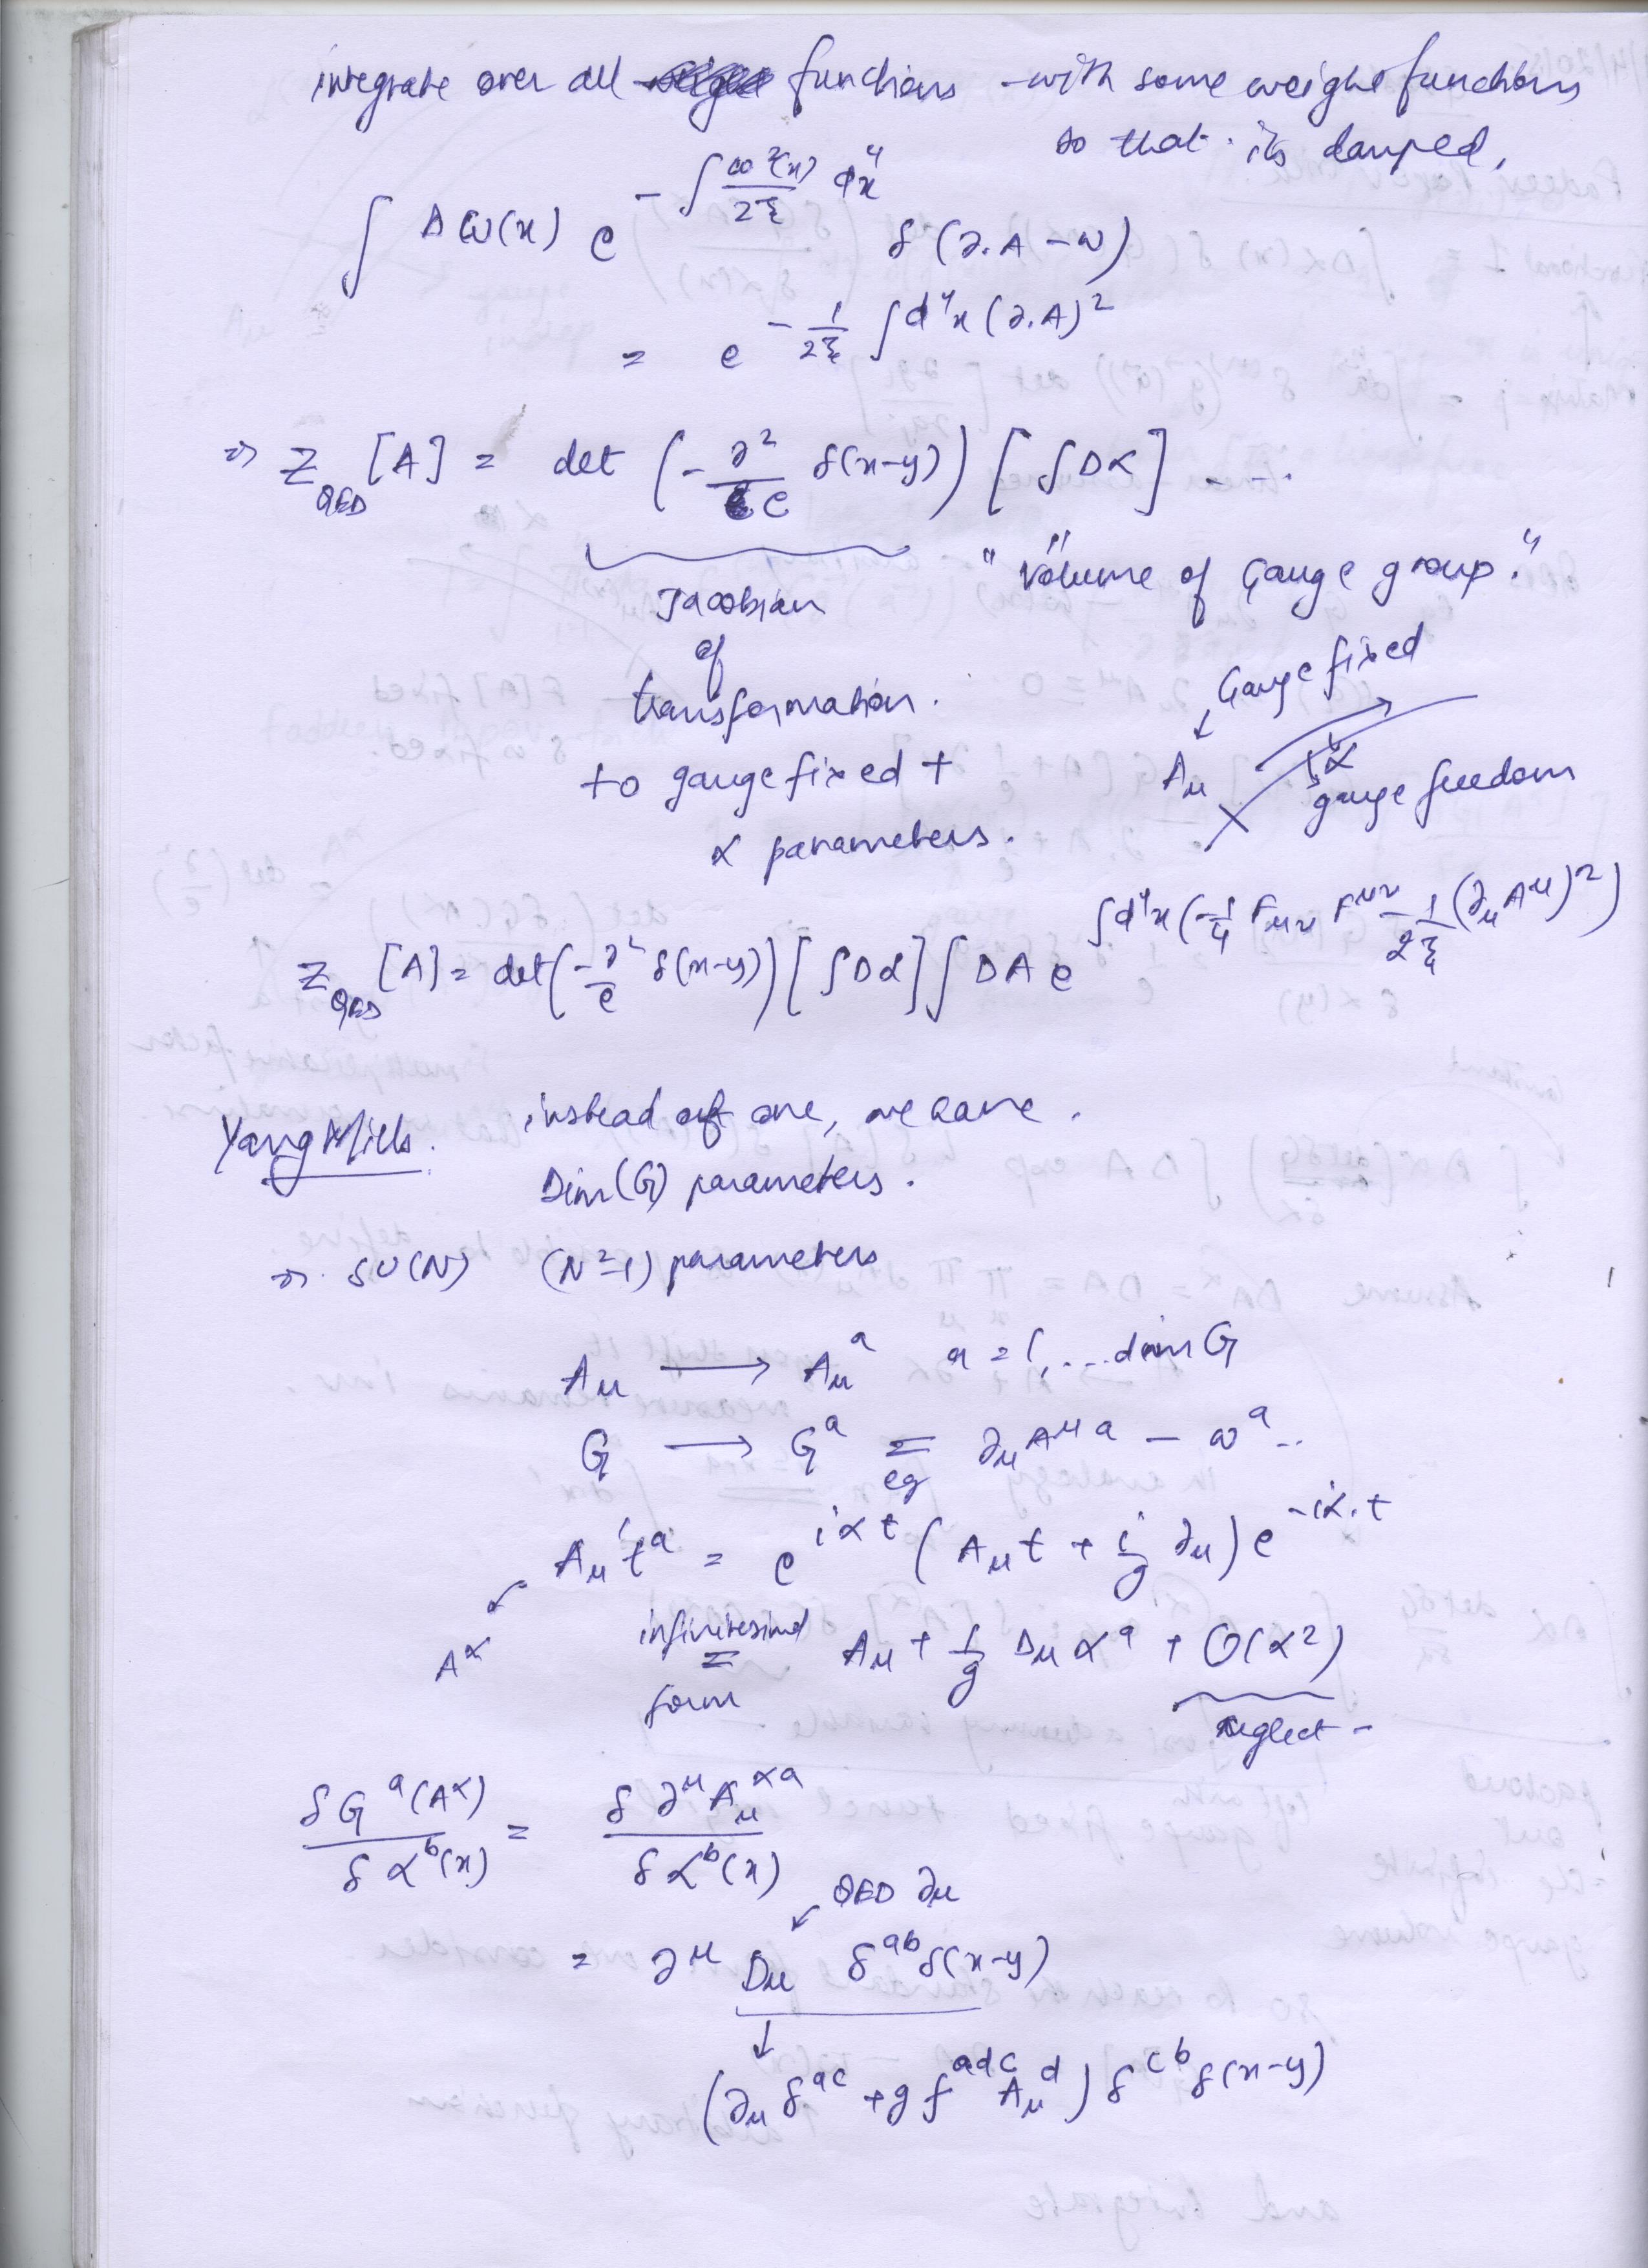 integrate over all functions - with some weight functions
so that its damped,
∫ Dω(x) e^{-∫ ω²(x)/2ξ d⁴x} δ(∂.A - ω)
= e^{-1/2ξ ∫d⁴x (∂.A)²}
⇒ Z_QED [A] = det (-∂²/e δ(x-y)) [∫Dα] - - .
Jacobian
of
transformation.
to gauge fixed +
α parameters.
"Volume of Gauge group."
Gauge fixed
A_μ
α
gauge freedom
Z_QED [A] = det(-∂²/e δ(x-y)) [∫Dα] ∫DA e^{∫d⁴x (-1/4 F_μν F^μν - 1/2ξ (∂_μ A^μ)²)}
Yang Mills. instead of one, we have.
Dim(G) parameters.
⇒ SU(N) (N²-1) parameters
A_μ ⟶ A_μ^a a = 1, ... dim G
G ⟶ G^a =_{eg} ∂_μ A^{μa} - ω^a ..
A_μ' t^a = e^{iαt} (A_μ t + i/g ∂_μ) e^{-iα.t}
A^α
infinitesimal = form A_μ + 1/g D_μ α^a + O(α²)
neglect -
δG^a(A^α)/δα^b(x) = δ∂^μ A_μ^{αa}/δα^b(x)
QED ∂_μ
= ∂^μ D_μ δ^{ab} δ(x-y)
(∂_μ δ^{ac} + g f^{adc} A_μ^d) δ^{cb} δ(x-y)